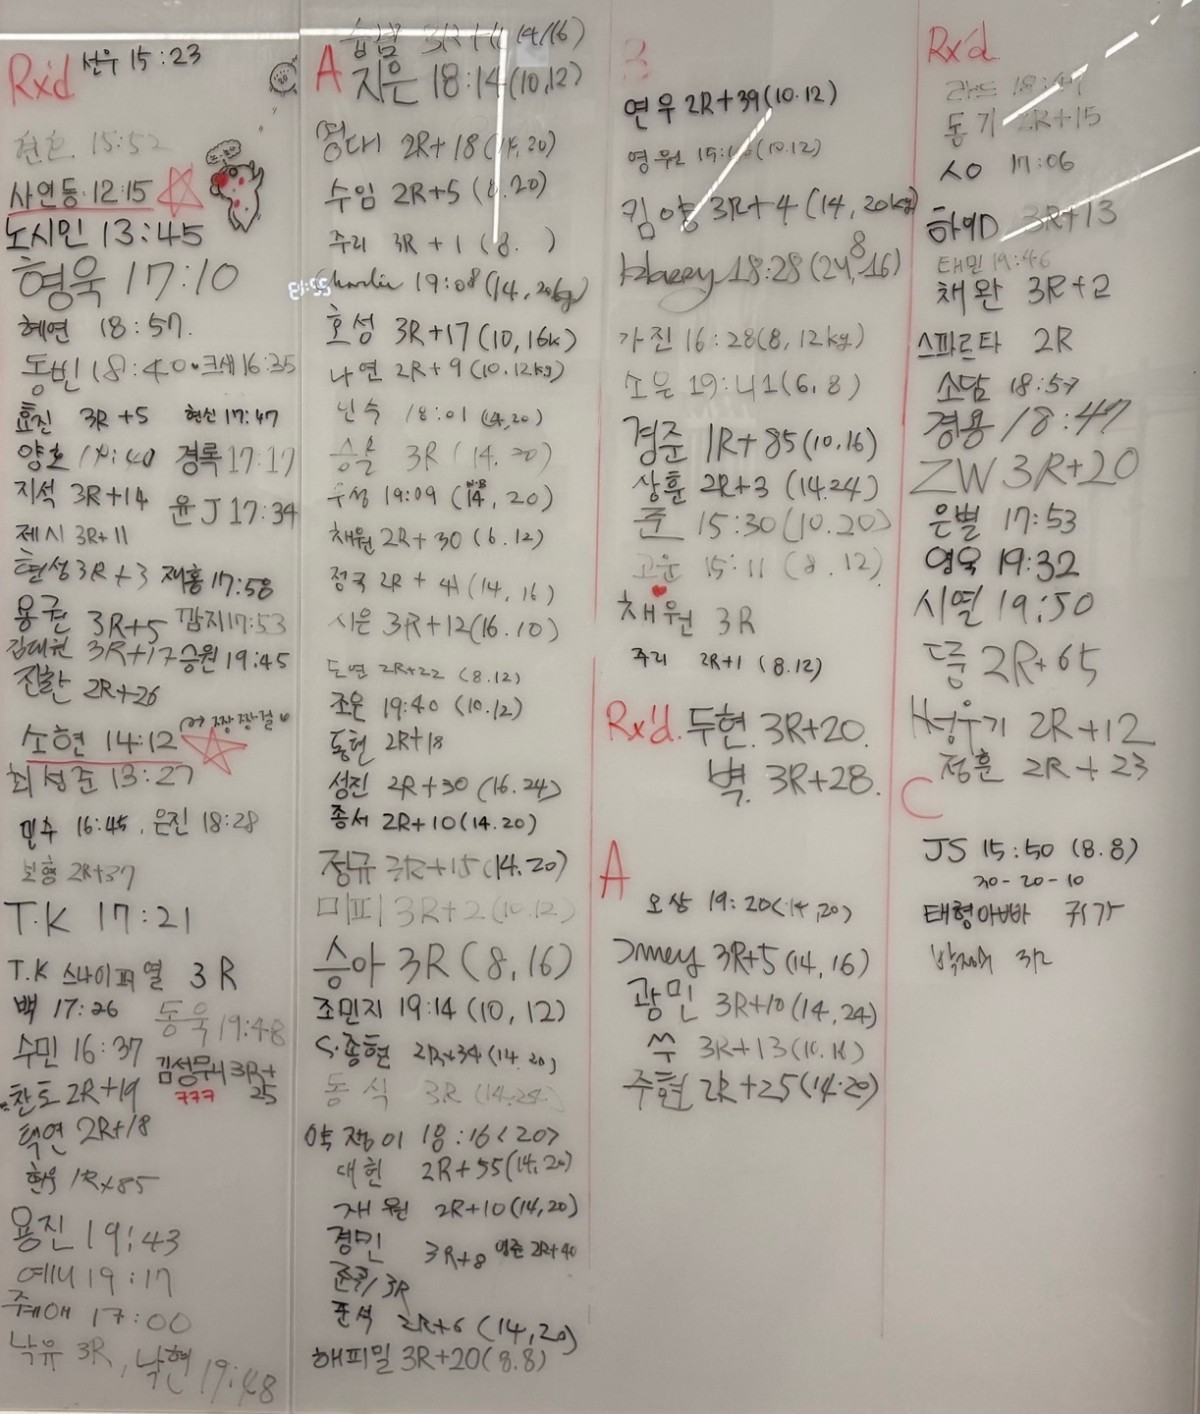 Rx'd 선우 15:23
현호 15:52
사연동 12:15
노시민 13:45
형욱 17:10
혜연 18:57.
동빈 18:40 • 크새 16:35
효진 3R+5 현신 17:47
양호 14:40 경록 17:17
지석 3R+14 윤J 17:34
제시 3R+11
현성 3R+3 재홍 17:58
용권 3R+5 깜지 17:53
김대원 3R+17 승원 19:45
진환 2R+26
소현 14:12 짱짱걸
최성준 13:27
민수 16:45, 은진 18:28
보형 2R+37
T.K 17:21
T.K 스나이퍼 열 3R
백 17:26 동욱 19:48
수민 16:37 김성무니 3R+25
찬토 2R+19 ㅋㅋㅋ
택연 2R+18
현우 1R+85
용진 19:43
예니 19:17
쥐애 17:00
낙유 3R, 낙현 19:48
A
지은 18:14 (10,12)
명대 2R+18 (14,20)
수임 2R+5 (8.20)
주리 3R+1 (8. )
Charlie 19:08 (14,20kg)
호성 3R+17 (10,16k)
나연 2R+9 (10.12kg)
민수 18:01 (14,20)
승율 3R (14.20)
우성 19:09 (14, 20)
채원 2R+30 (6.12)
정국 2R+41 (14,16)
시은 3R+12 (16.10)
도연 2R+22 (8.12)
조운 19:40 (10.12)
동현 2R+18
성진 2R+30 (16.24)
종서 2R+10 (14.20)
정규 3R+15 (14.20)
미피 3R+2 (10.12)
승아 3R (8,16)
조민지 19:14 (10,12)
S.종현 2R+34 (14.20)
동식 3R (14.24)
약쟁이 18:16 <20>
대헌 2R+55 (14,20)
재원 2R+10 (14,20)
경민 3R+8 영준 2R+40
준쿠 3R
준석 2R+6 (14,20)
해피밀 3R+20 (8.8)
B
연우 2R+39 (10.12)
영원 (10.12)
킴양 3R+4 (14,20kg)
Harry 18:28 (24,16)
8
가진 16:28 (8,12kg)
소은 19:41 (6.8)
경준 1R+85 (10.16)
상훈 2R+3 (14.24)
준 15:30 (10.20)
고운 15:11 (8.12)
채원 3R
주리 2R+1 (8.12)
Rx'd. 두현. 3R+20.
벽. 3R+28.
A
오상 19:20 (14,20)
Jmey 3R+5 (14,16)
광민 3R+10 (14,24)
쑤 3R+13 (10.16)
주현 2R+25 (14.20)
Rx'd
18:47
동기 2R+15
시O 17:06
하영D 3R+13
태민 19:46
채완 3R+2
스파르타 2R
소담 18:57
경용 18:47
ZW 3R+20
은별 17:53
영욱 19:32
시열 19:50
둠 2R+65
H성우기 2R+12
정훈 2R+23
C
JS 15:50 (8.8)
30-20-10
태형아빠 귀가
3R